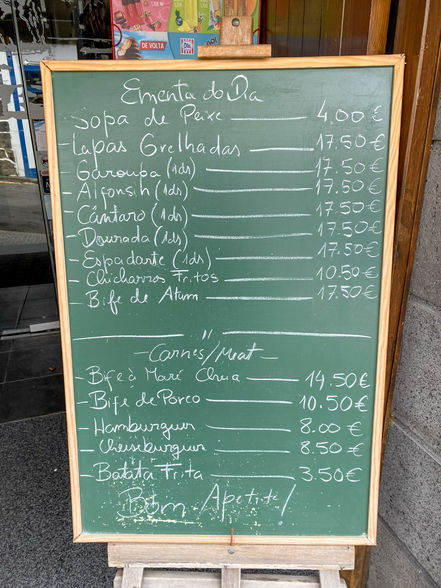 DE VOLTA
Olá
Ementa do Dia
Sopa de Peixe 4,00 €
- Lapas Grelhadas 17.50 €
- Garoupa (1ds) 17.50 €
- Alfonsin (1ds) 17.50 €
- Cântaro (1ds) 17.50 €
- Dourada (1ds) 17.50 €
- Espadarte (1ds) 17.50 €
- Chicharros Fritos 10.50 €
- Bife de Atum 17.50 €
"
- Carnes/Meat -
- Bife à Maré Cheia 14.50 €
- Bife de Porco 10.50 €
- Hamburguer 8.00 €
- Cheeseburguer 8.50 €
- Batata Frita 3.50 €
Bom Apetite!